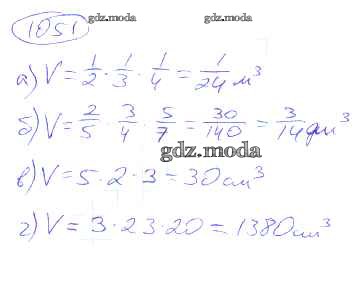 1051
gdz.moda gdz.moda
а) V = 1/2 · 1/3 · 1/4 = 1/24 м³
б) V = 2/5 · 3/4 · 5/7 = 30/140 = 3/14 дм³
gdz.moda
в) V = 5 · 2 · 3 = 30 см³
г) V = 3 · 23 · 20 = 1380 см³